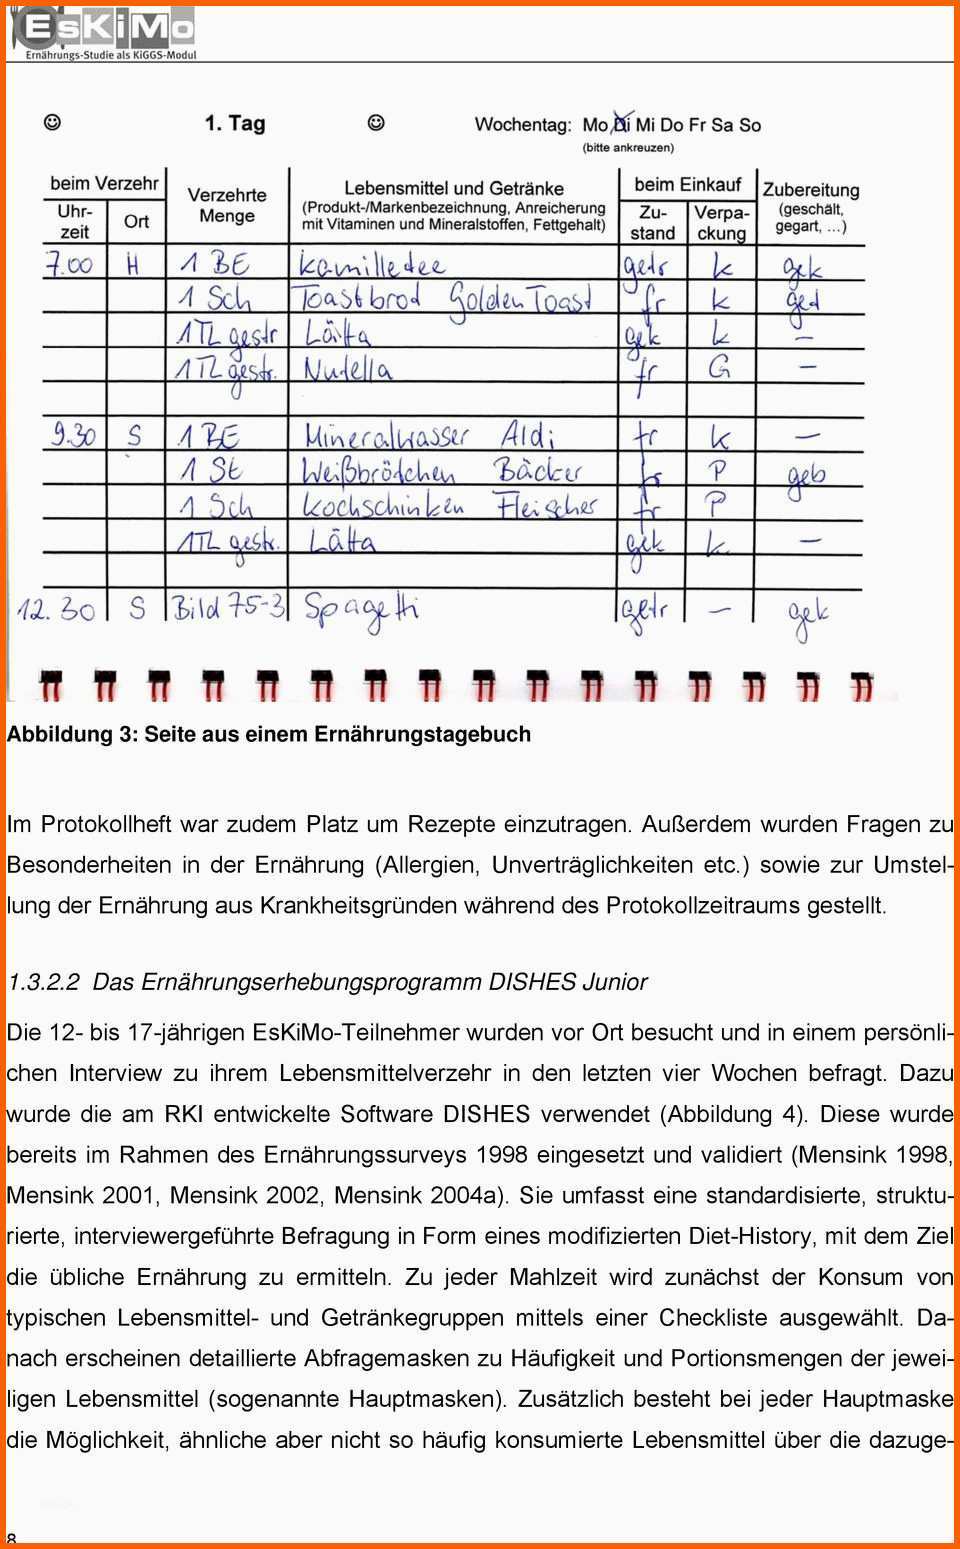 EsKiMo
Ernährungs-Studie als KiGGS-Modul
☺ 1. Tag ☺ Wochentag: Mo Di Mi Do Fr Sa So
(bitte ankreuzen)
beim Verzehr Verzehrte Menge Lebensmittel und Getränke beim Einkauf Zubereitung
(Produkt-/Markenbezeichnung, Anreicherung (geschält,
Uhr-zeit Ort mit Vitaminen und Mineralstoffen, Fettgehalt) Zu-stand Verpa-ckung gegart, ...)
7.00 H 1 BE Kamilletee getr k gek
1 Sch Toastbrod Golden Toast fr k
1TL gestr Lätta gek k –
1TL gestr. Nutella fr G –
9.30 S 1 BE Mineralwasser Aldi fr k –
1 St Weißbrödchen Bäcker fr P geb
1 Sch Kochschinken Fleischer fr P
1TL gestr. Lätta gek k. –
12.30 S Bild 75-3 Spagetti getr – gek
Abbildung 3: Seite aus einem Ernährungstagebuch
Im Protokollheft war zudem Platz um Rezepte einzutragen. Außerdem wurden Fragen zu
Besonderheiten in der Ernährung (Allergien, Unverträglichkeiten etc.) sowie zur Umstel-
lung der Ernährung aus Krankheitsgründen während des Protokollzeitraums gestellt.
1.3.2.2 Das Ernährungserhebungsprogramm DISHES Junior
Die 12- bis 17-jährigen EsKiMo-Teilnehmer wurden vor Ort besucht und in einem persönli-
chen Interview zu ihrem Lebensmittelverzehr in den letzten vier Wochen befragt. Dazu
wurde die am RKI entwickelte Software DISHES verwendet (Abbildung 4). Diese wurde
bereits im Rahmen des Ernährungssurveys 1998 eingesetzt und validiert (Mensink 1998,
Mensink 2001, Mensink 2002, Mensink 2004a). Sie umfasst eine standardisierte, struktu-
rierte, interviewergeführte Befragung in Form eines modifizierten Diet-History, mit dem Ziel
die übliche Ernährung zu ermitteln. Zu jeder Mahlzeit wird zunächst der Konsum von
typischen Lebensmittel- und Getränkegruppen mittels einer Checkliste ausgewählt. Da-
nach erscheinen detaillierte Abfragemasken zu Häufigkeit und Portionsmengen der jewei-
ligen Lebensmittel (sogenannte Hauptmasken). Zusätzlich besteht bei jeder Hauptmaske
die Möglichkeit, ähnliche aber nicht so häufig konsumierte Lebensmittel über die dazuge-
8